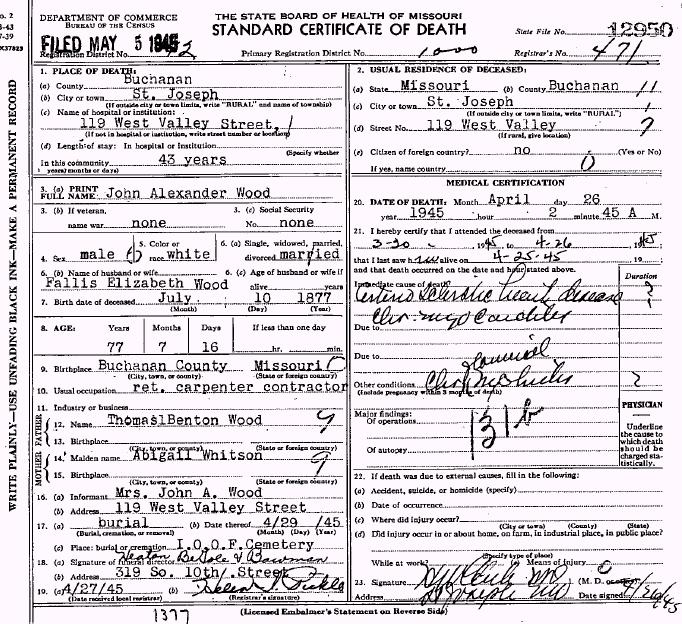 o. 2
-43
7-39
X37823
WRITE PLAINLY—USE UNFADING BLACK INK—MAKE A PERMANENT RECORD
DEPARTMENT OF COMMERCE
BUREAU OF THE CENSUS
FILED MAY 5 1945
Registration District No.
THE STATE BOARD OF HEALTH OF MISSOURI
STANDARD CERTIFICATE OF DEATH
Primary Registration District No. 1000
State File No. 12950
Registrar's No. 471
1. PLACE OF DEATH:
(a) County Buchanan
(b) City or town St. Joseph
(If outside city or town limits, write "RURAL" and name of township)
(c) Name of hospital or institution:
119 West Valley Street,
(If not in hospital or institution, write street number or location)
(d) Length of stay: In hospital or institution
(Specify whether
In this community 43 years
years, months or days)
3. (a) PRINT FULL NAME John Alexander Wood
3. (b) If veteran, name war none
3. (c) Social Security No. none
4. Sex male
5. Color or race white
6. (a) Single, widowed, married, divorced married
6. (b) Name of husband or wife
6. (c) Age of husband or wife if
Fallis Elizabeth Wood alive years
7. Birth date of deceased July 10 1877
(Month) (Day) (Year)
8. AGE: Years Months Days If less than one day
77 7 16 hr. min.
9. Birthplace Buchanan County Missouri
(City, town, or county) (State or foreign country)
10. Usual occupation ret. carpenter contractor
11. Industry or business
FATHER
12. Name Thomas Benton Wood
13. Birthplace
(City, town, or county) (State or foreign country)
MOTHER
14. Maiden name Abigail Whitson
15. Birthplace
(City, town, or county) (State or foreign country)
16. (a) Informant Mrs. John A. Wood
(b) Address 119 West Valley Street
17. (a) burial (b) Date thereof 4/29 /45
(Burial, cremation, or removal) (Month) (Day) (Year)
(c) Place: burial or cremation I.O.O.F. Cemetery
18. (a) Signature of funeral director Heaton BeGole & Bowman
(b) Address 319 So. 10th Street
19. (a) 4/27/45 (b) Helen
(Date received local registrar) (Registrar's signature)
2. USUAL RESIDENCE OF DECEASED:
(a) State Missouri (b) County Buchanan 11
(c) City or town St. Joseph
(If outside city or town limits, write "RURAL")
(d) Street No. 119 West Valley
(If rural, give location)
(e) Citizen of foreign country? no (Yes or No)
If yes, name country
MEDICAL CERTIFICATION
20. DATE OF DEATH: Month April day 26
year 1945 hour 2 minute 45 A M.
21. I hereby certify that I attended the deceased from
3-20 1945 to 4-26 1945
that I last saw him alive on 4-25-45 19
and that death occurred on the date and hour stated above.
Duration
Immediate cause of death
Arterio Sclerotic heart disease ?
Chr. myocarditis
Due to
Due to
Other conditions Chr. ?
(Include pregnancy within 3 months of death)
Major findings:
Of operations
131b
Of autopsy
PHYSICIAN
Underline the cause to which death should be charged statistically.
22. If death was due to external causes, fill in the following:
(a) Accident, suicide, or homicide (specify)
(b) Date of occurrence
(c) Where did injury occur?
(City or town) (County) (State)
(d) Did injury occur in or about home, on farm, in industrial place, in public place?
(Specify type of place)
While at work? (e) Means of injury
23. Signature (M. D. or other)
Address St Joseph Mo Date signed 4/26/45
(Licensed Embalmer's Statement on Reverse Side)
1377